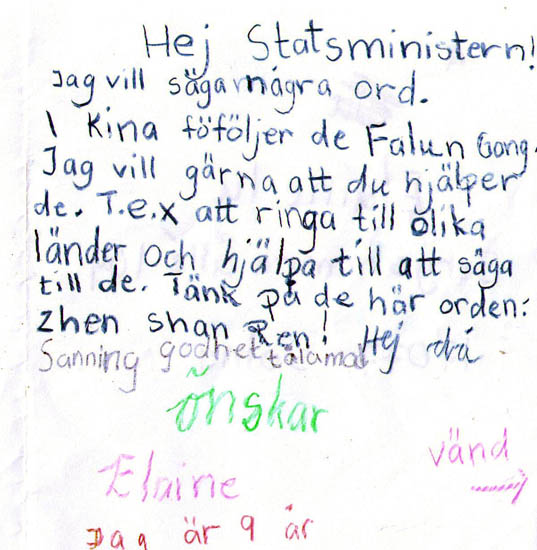 Hej Statsministern!
Jag vill säga några ord.
I Kina föföljer de Falun Gong.
Jag vill gärna att du hjälper
de. T.e.x att ringa till olika
länder och hjälpa till att säga
till de. Tänk på de här orden:
zhen shan Ren! Hej då
Sanning godhet tålamod
önskar
vänd
Elaine
Jag är 9 år